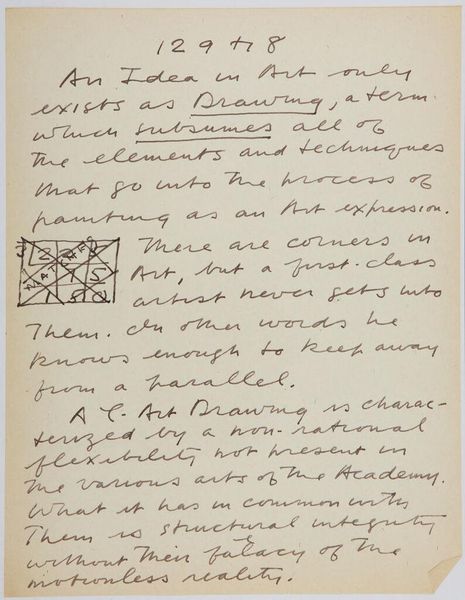 129 + 8
An Idea in Art only
exists as Drawing, a term
which subsumes all of
the elements and techniques
that go into the process of
painting as an Art expression.
There are corners in
Art, but a first-class
artist never gets into
them. In other words he
knows enough to keep away
from a parallel.
A C. Art Drawing is charac-
terized by a non-rational
flexibility not present in
the various arts of the Academy.
What it has in common with
them is structural integrity
without their falacy of the
motionless reality.